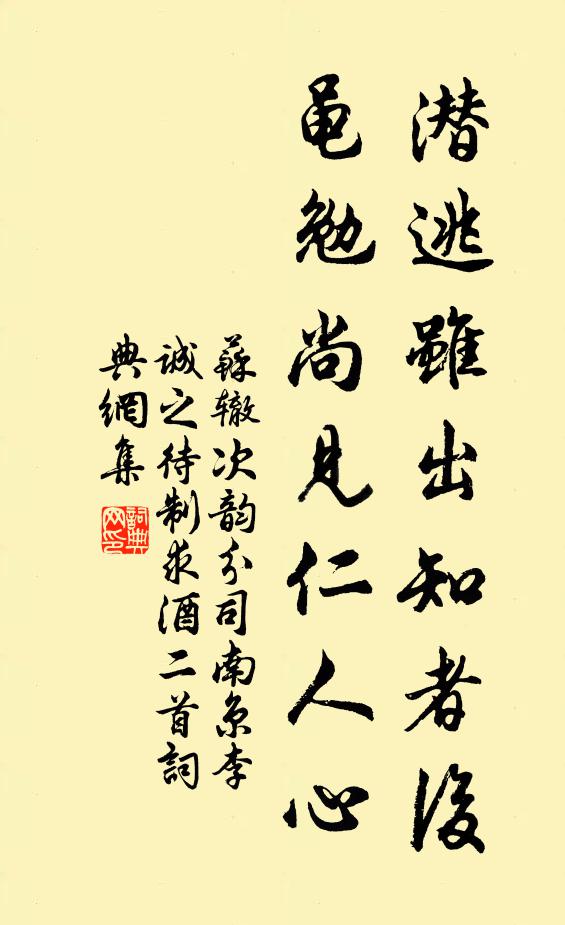 潜逃雖出知者後
黽勉尚見仁人心
蘇轍次韵分司南京李
誠之待制求酒二首詞
典網集
詞典网印